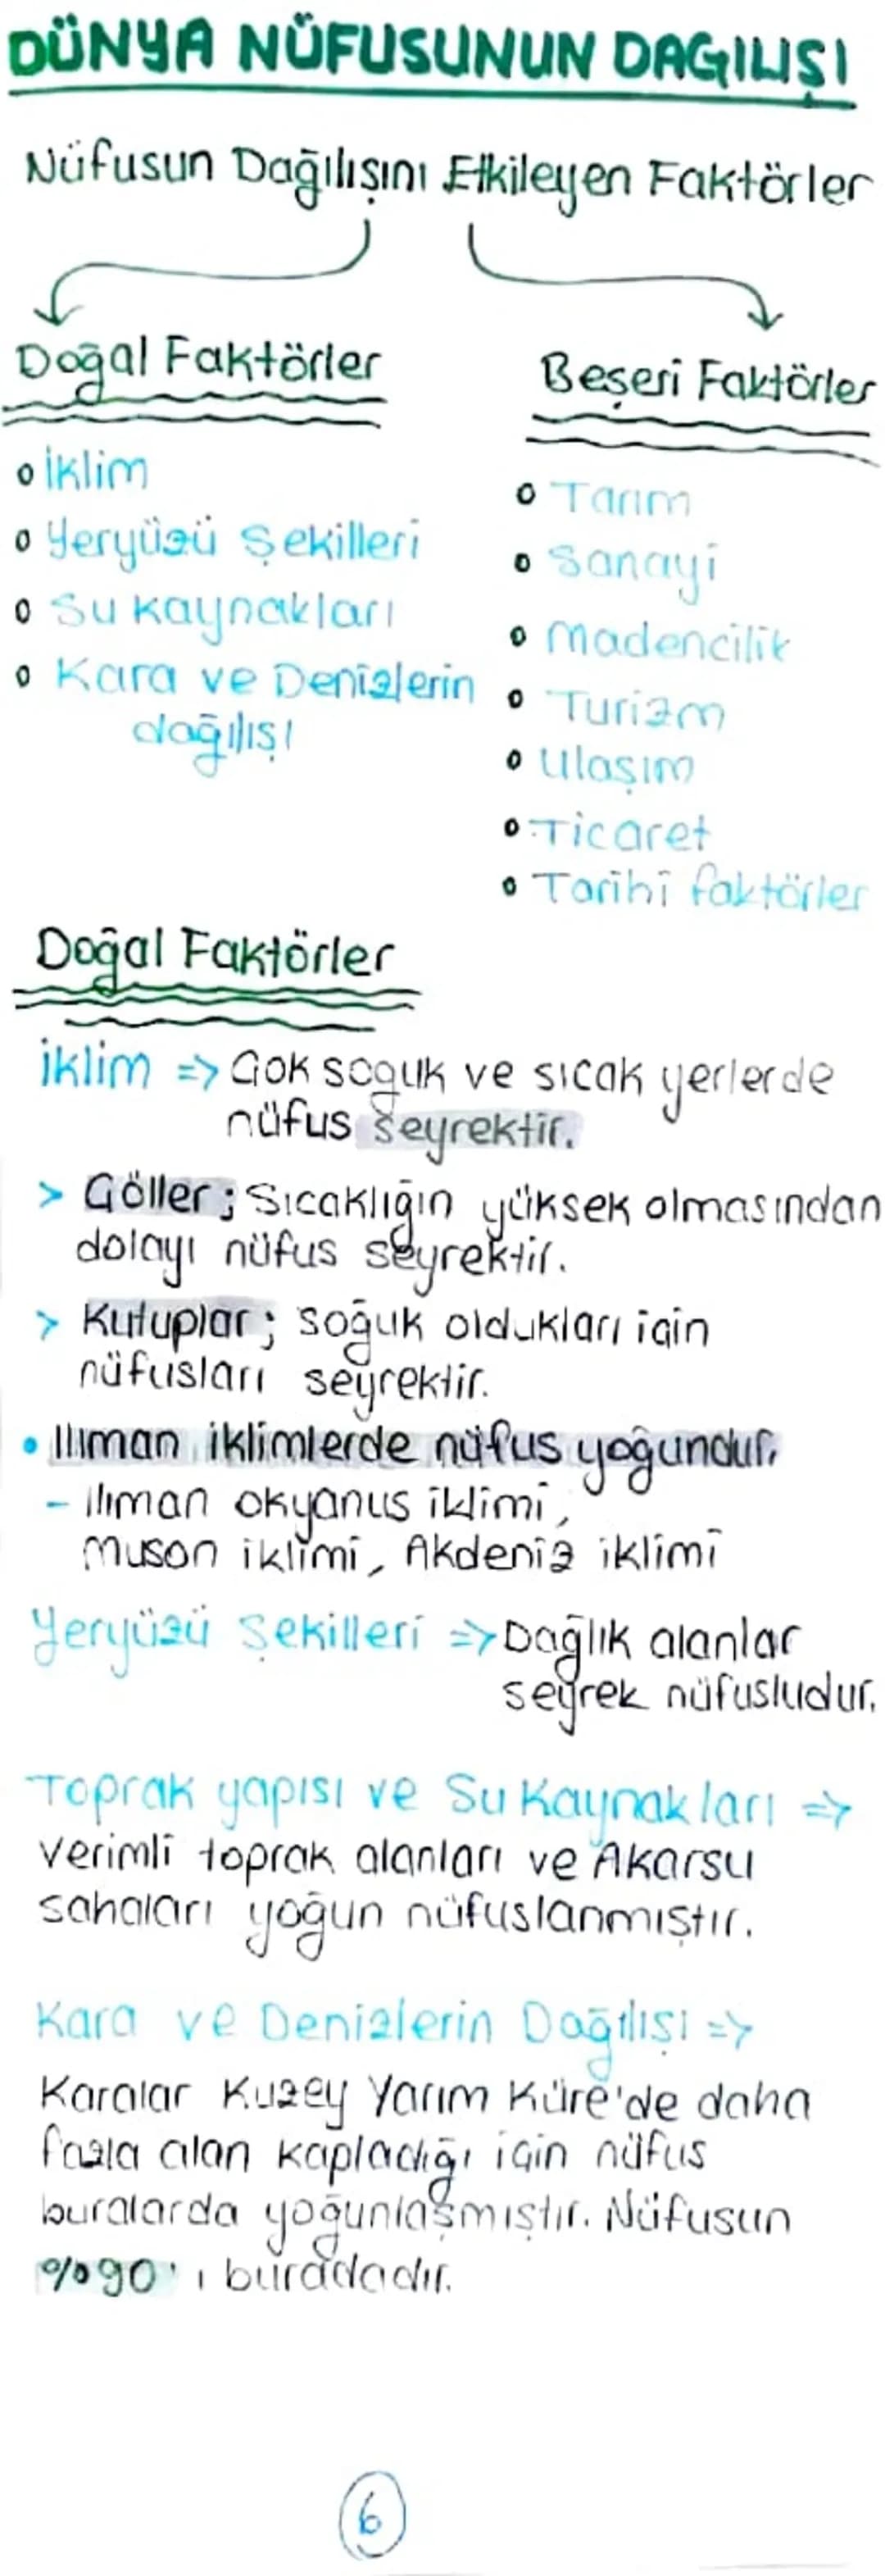 DÜNYA NÜFUSUNUN DAGILIŞI
Nüfusun Dağılışını Etkileyen Faktörler
Doğal Faktörler
o İklim
o Yeryüzü Şekilleri
o Su kaynakları
o Kara ve Denizlerin
dağılışı
Beşeri Faktörler
o Tarım
o Sanayi
o Madencilik
o Turizm
o Ulaşım
o Ticaret
o Tarihi faktörler
Doğal Faktörler
İklim => Çok soguk ve sıcak yerlerde
nüfus seyrektir.
> Çöller; Sıcaklığın yüksek olmasından
dolayı nüfus seyrektir.
> Kutuplar; soğuk oldukları için
nüfusları seyrektir.
• Ilıman iklimlerde nüfus yoğundur.
- ılıman okyanus iklimi,
Muson iklimi, Akdeniz iklimi
Yeryüzü Şekilleri => Dağlık alanlar
seyrek nüfusludur.
Toprak yapısı ve Su Kaynakları =>
Verimli toprak alanları ve Akarsu
sahaları yoğun nüfuslanmıştır.
Kara ve Denizlerin Dağılışı =>
Karalar Kuzey Yarım Küre'de daha
fazla alan kapladığı için nüfus
buralarda yoğunlaşmıştır. Nüfusun
%90'ı buradadır.
6